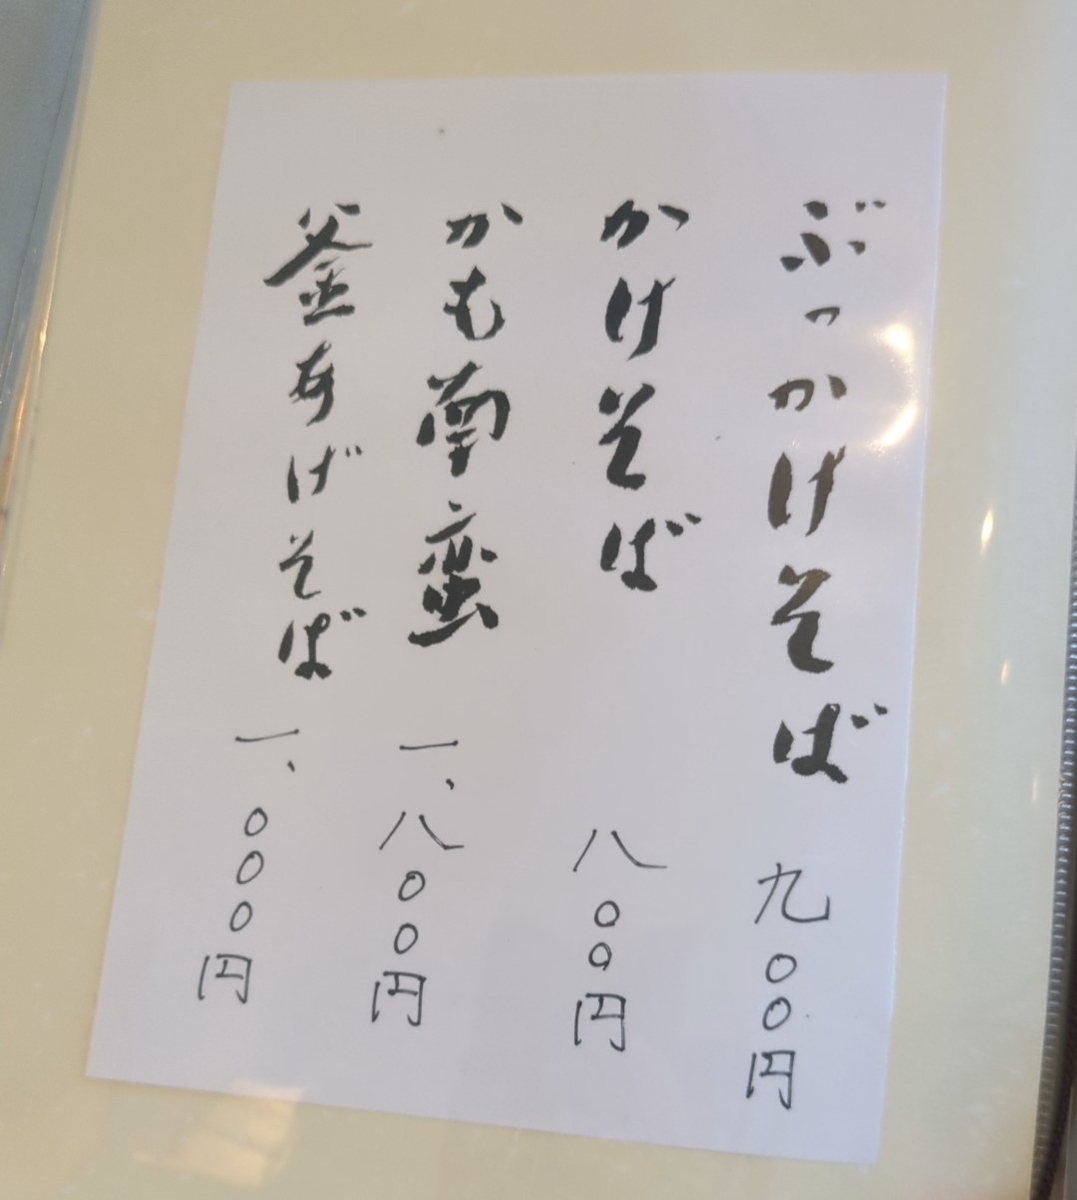 ぶっかけそば 九〇〇円
かけそば 八〇〇円
かも南蛮 一、八〇〇円
釜あげそば 一、〇〇〇円